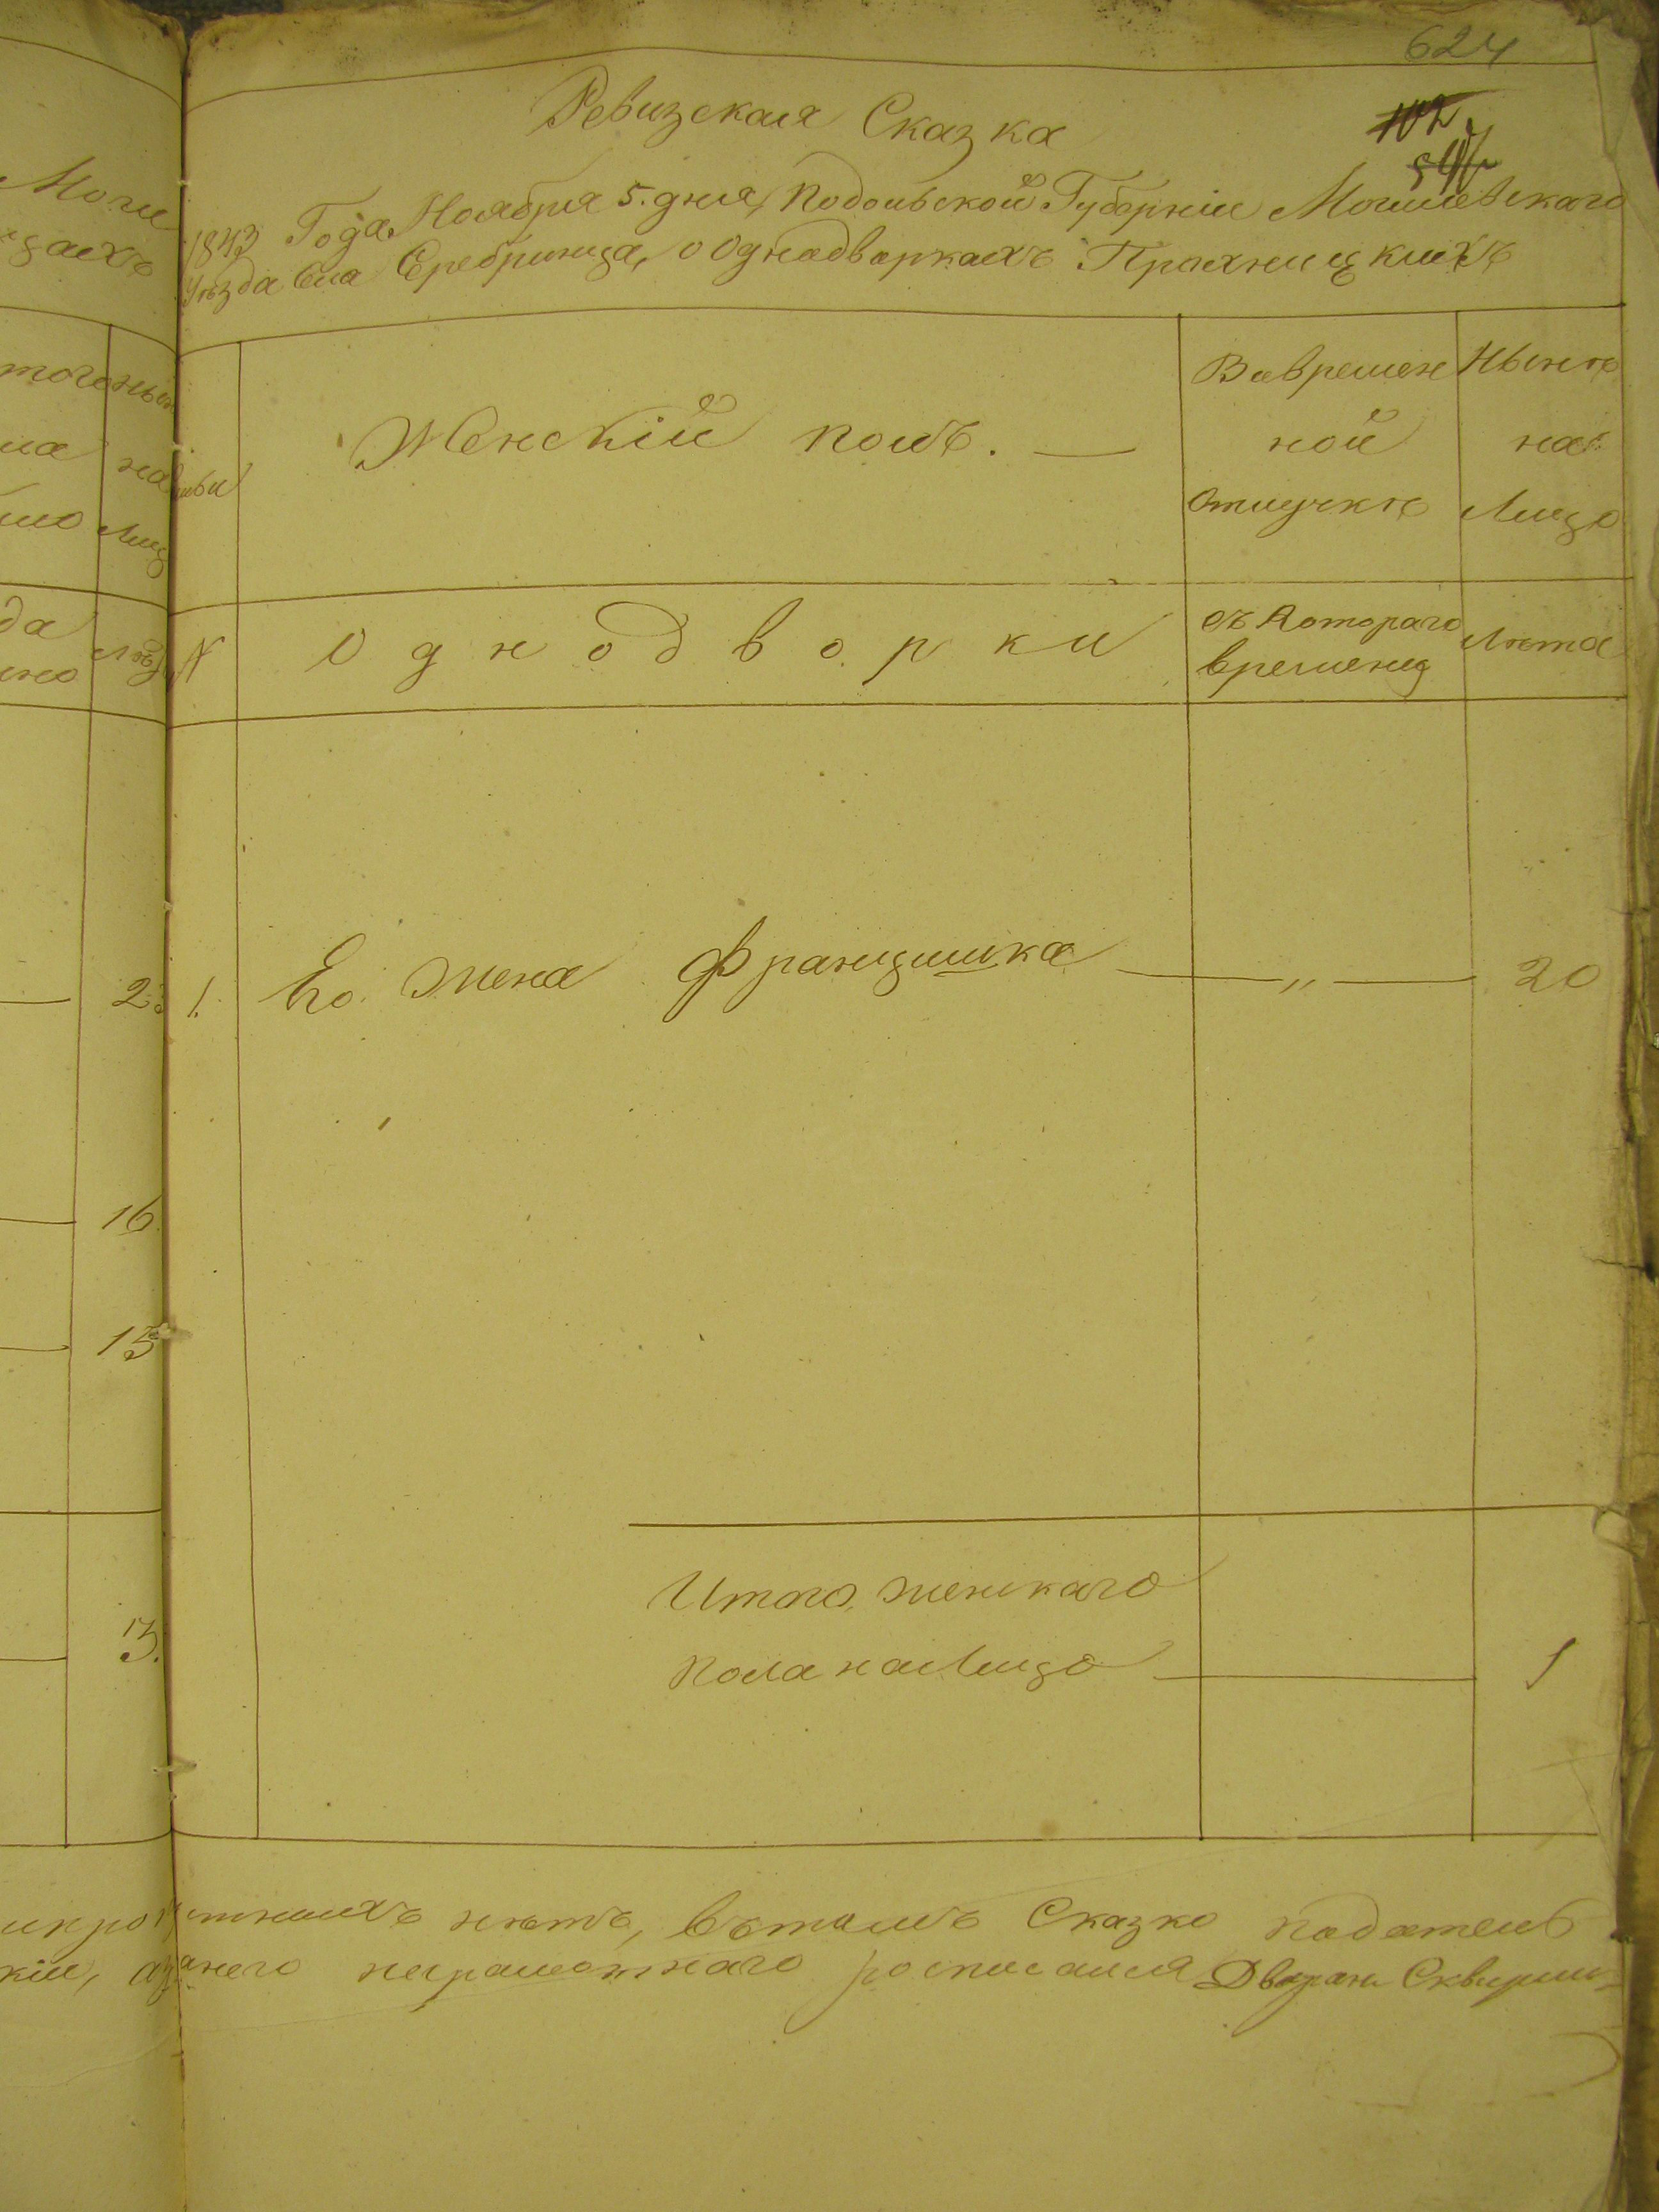 624
Ревизская Сказка
102
1843 Года Ноября 5. дня, Подольской Губерніи Могилевскаго
Уѣзда Села Серебринца, о Однодворкахъ Прахницкихъ
Женскій полъ. —
Вовремен
ной
отлучкѣ
Нынѣ
на
Лицо
N
Однодворки
съ Котораго
времени
Лѣта
23
1.
Его Жена Францишка — „ —
20
16
15
Итого женскаго
Пола на Лицо —
1
3.
нѣтъ, вътомъ Сказко податель
неграмотнаго росписался Дворян